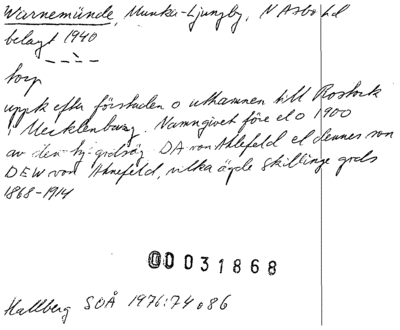 Warnemünde, Munka-Ljungby, N Åsbo hd
belagt 1940
torp
uppk efter förstaden o uthamnen till Rostock
i Mecklenburg. Namngivet före el o 1900
av den godsäg DA von Ahlefeld el dennes son
DEW von Ahlefeld, vilka ägde Skillinge gods
1868-1914
00031868
Hallberg SOÅ 1976:74 o 86